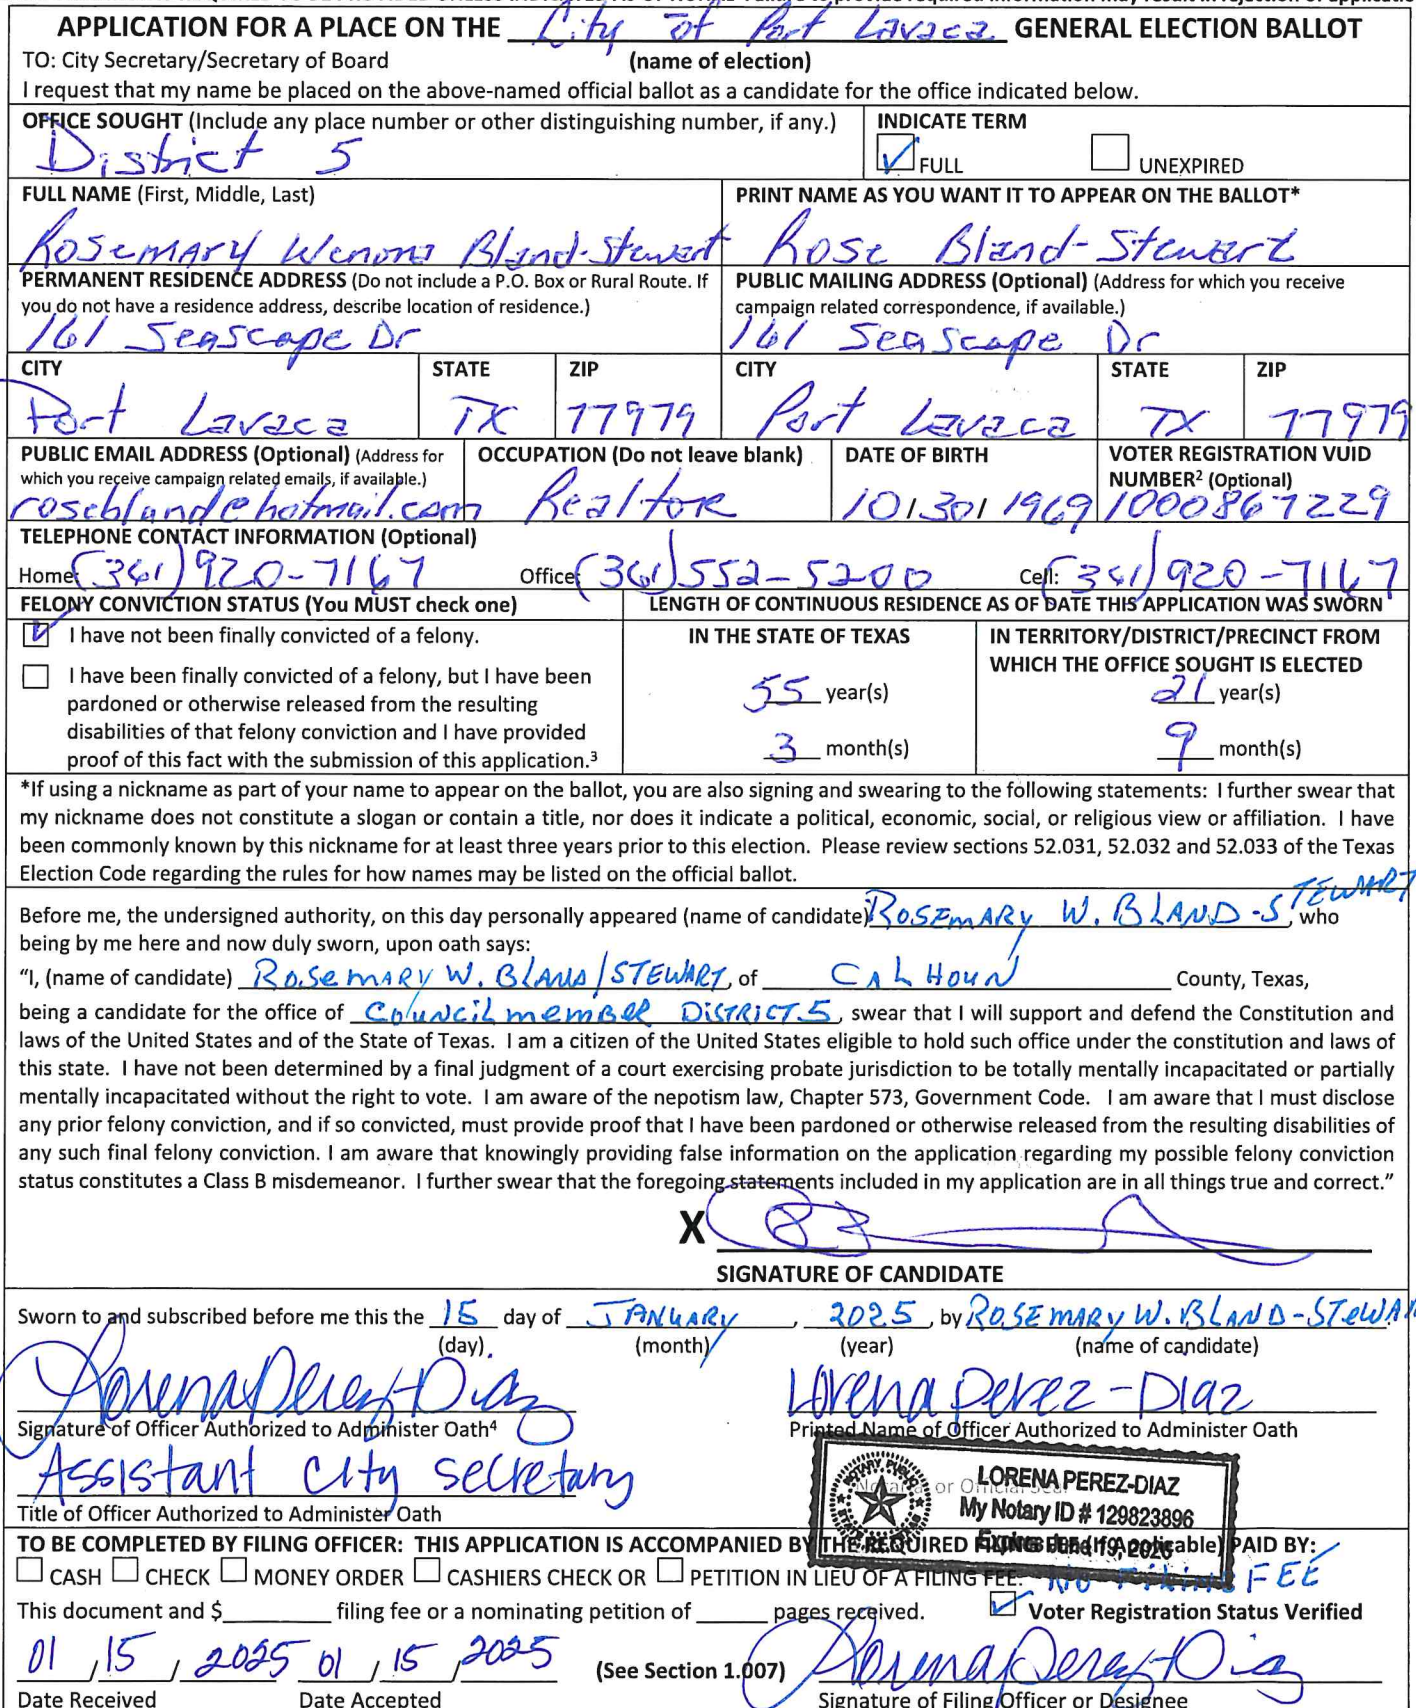 APPLICATION FOR A PLACE ON THE City of Port Lavaca GENERAL ELECTION BALLOT
TO: City Secretary/Secretary of Board (name of election)
I request that my name be placed on the above-named official ballot as a candidate for the office indicated below.
OFFICE SOUGHT (Include any place number or other distinguishing number, if any.) INDICATE TERM
District 5 ✓ FULL UNEXPIRED
FULL NAME (First, Middle, Last) PRINT NAME AS YOU WANT IT TO APPEAR ON THE BALLOT*
Rosemary Wenona Bland-Stewart Rose Bland-Stewart
PERMANENT RESIDENCE ADDRESS (Do not include a P.O. Box or Rural Route. If PUBLIC MAILING ADDRESS (Optional) (Address for which you receive
you do not have a residence address, describe location of residence.) campaign related correspondence, if available.)
161 Seascape Dr 161 Seascape Dr
CITY STATE ZIP CITY STATE ZIP
Port Lavaca TX 77979 Port Lavaca TX 77979
PUBLIC EMAIL ADDRESS (Optional) (Address for OCCUPATION (Do not leave blank) DATE OF BIRTH VOTER REGISTRATION VUID
which you receive campaign related emails, if available.) NUMBER² (Optional)
rosebland@hotmail.com Realtor 10/30/1969 1000867229
TELEPHONE CONTACT INFORMATION (Optional)
Home: (361) 920-7167 Office: (361) 552-5200 Cell: (361) 920-7167
FELONY CONVICTION STATUS (You MUST check one) LENGTH OF CONTINUOUS RESIDENCE AS OF DATE THIS APPLICATION WAS SWORN
✓ I have not been finally convicted of a felony. IN THE STATE OF TEXAS IN TERRITORY/DISTRICT/PRECINCT FROM
WHICH THE OFFICE SOUGHT IS ELECTED
I have been finally convicted of a felony, but I have been
pardoned or otherwise released from the resulting 55 year(s) 21 year(s)
disabilities of that felony conviction and I have provided
proof of this fact with the submission of this application.³ 3 month(s) 9 month(s)
*If using a nickname as part of your name to appear on the ballot, you are also signing and swearing to the following statements: I further swear that
my nickname does not constitute a slogan or contain a title, nor does it indicate a political, economic, social, or religious view or affiliation. I have
been commonly known by this nickname for at least three years prior to this election. Please review sections 52.031, 52.032 and 52.033 of the Texas
Election Code regarding the rules for how names may be listed on the official ballot.
Before me, the undersigned authority, on this day personally appeared (name of candidate) ROSEMARY W. BLAND-STEWART, who
being by me here and now duly sworn, upon oath says:
"I, (name of candidate) ROSEMARY W. BLAND/STEWART, of CALHOUN County, Texas,
being a candidate for the office of COUNCILMEMBER DISTRICT 5, swear that I will support and defend the Constitution and
laws of the United States and of the State of Texas. I am a citizen of the United States eligible to hold such office under the constitution and laws of
this state. I have not been determined by a final judgment of a court exercising probate jurisdiction to be totally mentally incapacitated or partially
mentally incapacitated without the right to vote. I am aware of the nepotism law, Chapter 573, Government Code. I am aware that I must disclose
any prior felony conviction, and if so convicted, must provide proof that I have been pardoned or otherwise released from the resulting disabilities of
any such final felony conviction. I am aware that knowingly providing false information on the application regarding my possible felony conviction
status constitutes a Class B misdemeanor. I further swear that the foregoing statements included in my application are in all things true and correct."
X
SIGNATURE OF CANDIDATE
Sworn to and subscribed before me this the 15 day of JANUARY, 2025, by ROSEMARY W. BLAND-STEWAR
(day) (month) (year) (name of candidate)
Lorena Perez-Diaz Lorena Perez-Diaz
Signature of Officer Authorized to Administer Oath⁴ Printed Name of Officer Authorized to Administer Oath
Assistant City Secretary
Title of Officer Authorized to Administer Oath
NOTARY PUBLIC STATE OF TEXAS
LORENA PEREZ-DIAZ
My Notary ID # 129823896
Expires June 19, 2026
TO BE COMPLETED BY FILING OFFICER: THIS APPLICATION IS ACCOMPANIED BY THE REQUIRED FILING FEE (If Applicable) PAID BY:
CASH CHECK MONEY ORDER CASHIERS CHECK OR PETITION IN LIEU OF A FILING FEE. No Filing FEE
This document and $ filing fee or a nominating petition of pages received. ✓ Voter Registration Status Verified
01/15/2025 01/15/2025 (See Section 1.007) Lorena Perez-Diaz
Date Received Date Accepted Signature of Filing Officer or Designee